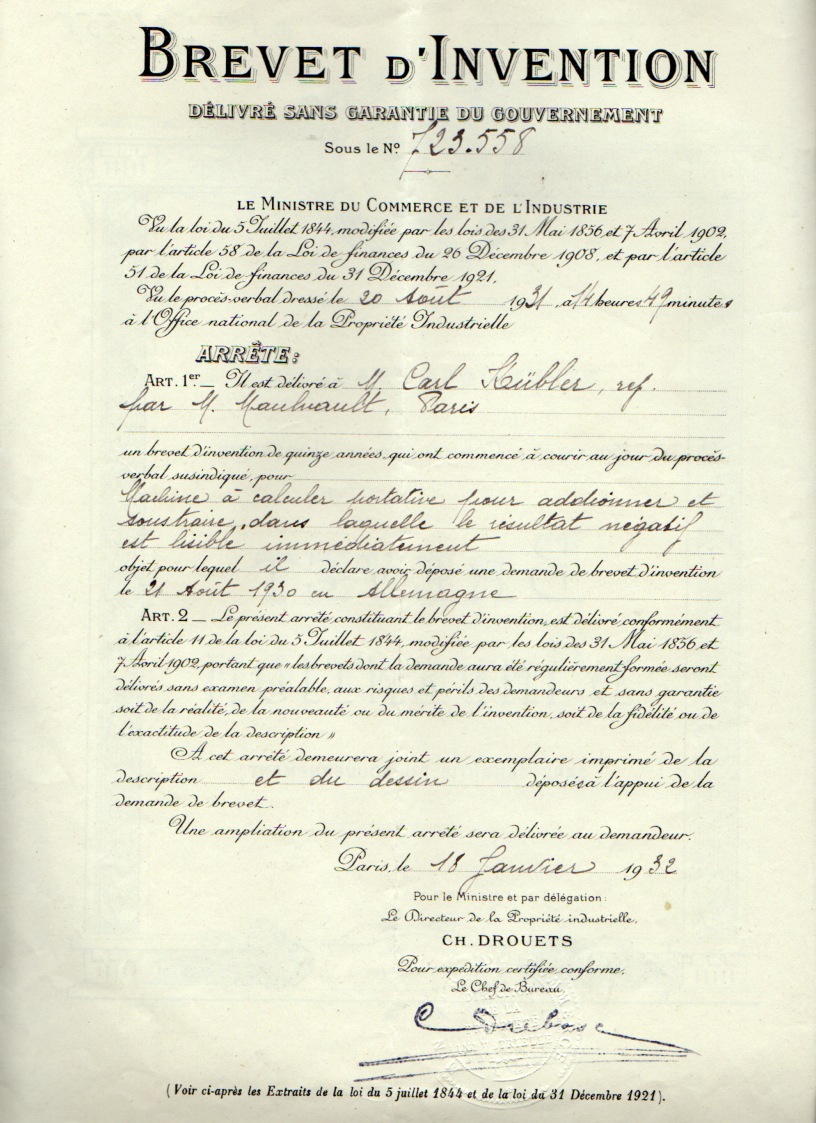 BREVET D'INVENTION
DÉLIVRÉ SANS GARANTIE DU GOUVERNEMENT
Sous le Nº 723.558
LE MINISTRE DU COMMERCE ET DE L'INDUSTRIE
Vu la loi du 5 Juillet 1844, modifiée par les lois des 31 Mai 1856 et 7 Avril 1902,
par l'article 58 de la Loi de finances du 26 Décembre 1908, et par l'article
51 de la Loi de finances du 31 Décembre 1921,
Vu le procès-verbal dressé le 20 Août 1931, à 14 heures 49 minutes
à l'Office national de la Propriété Industrielle
ARRÊTE:
ART. 1er._ Il est délivré à M. Carl Kübler, rep.
par M. Paris
un brevet d'invention de quinze années, qui ont commencé à courir au jour du procès-
verbal susindiqué, pour
Machine à calculer portative pour additionner et
soustraire, dans laquelle le résultat négatif
est lisible immédiatement
objet pour lequel il déclare avoir déposé une demande de brevet d'invention
le 21 Août 1930 en Allemagne
ART. 2 _ Le présent arrêté constituant le brevet d'invention, est délivré conformément
à l'article 11 de la loi du 5 Juillet 1844, modifiée par les lois des 31 Mai 1856 et
7 Avril 1902, portant que « les brevets dont la demande aura été régulièrement formée seront
délivrés sans examen préalable, aux risques et périls des demandeurs et sans garantie
soit de la réalité, de la nouveauté ou du mérite de l'invention, soit de la fidélité ou de
l'exactitude de la description »
A cet arrêté demeurera joint un exemplaire imprimé de la
description et du dessin déposés à l'appui de la
demande de brevet.
Une ampliation du présent arrêté sera délivrée au demandeur.
Paris, le 18 Janvier 1932
Pour le Ministre et par délégation:
Le Directeur de la Propriété industrielle,
CH. DROUETS
Pour expédition certifiée conforme,
Le Chef de Bureau,
(Voir ci-après les Extraits de la loi du 5 juillet 1844 et de la loi du 31 Décembre 1921).